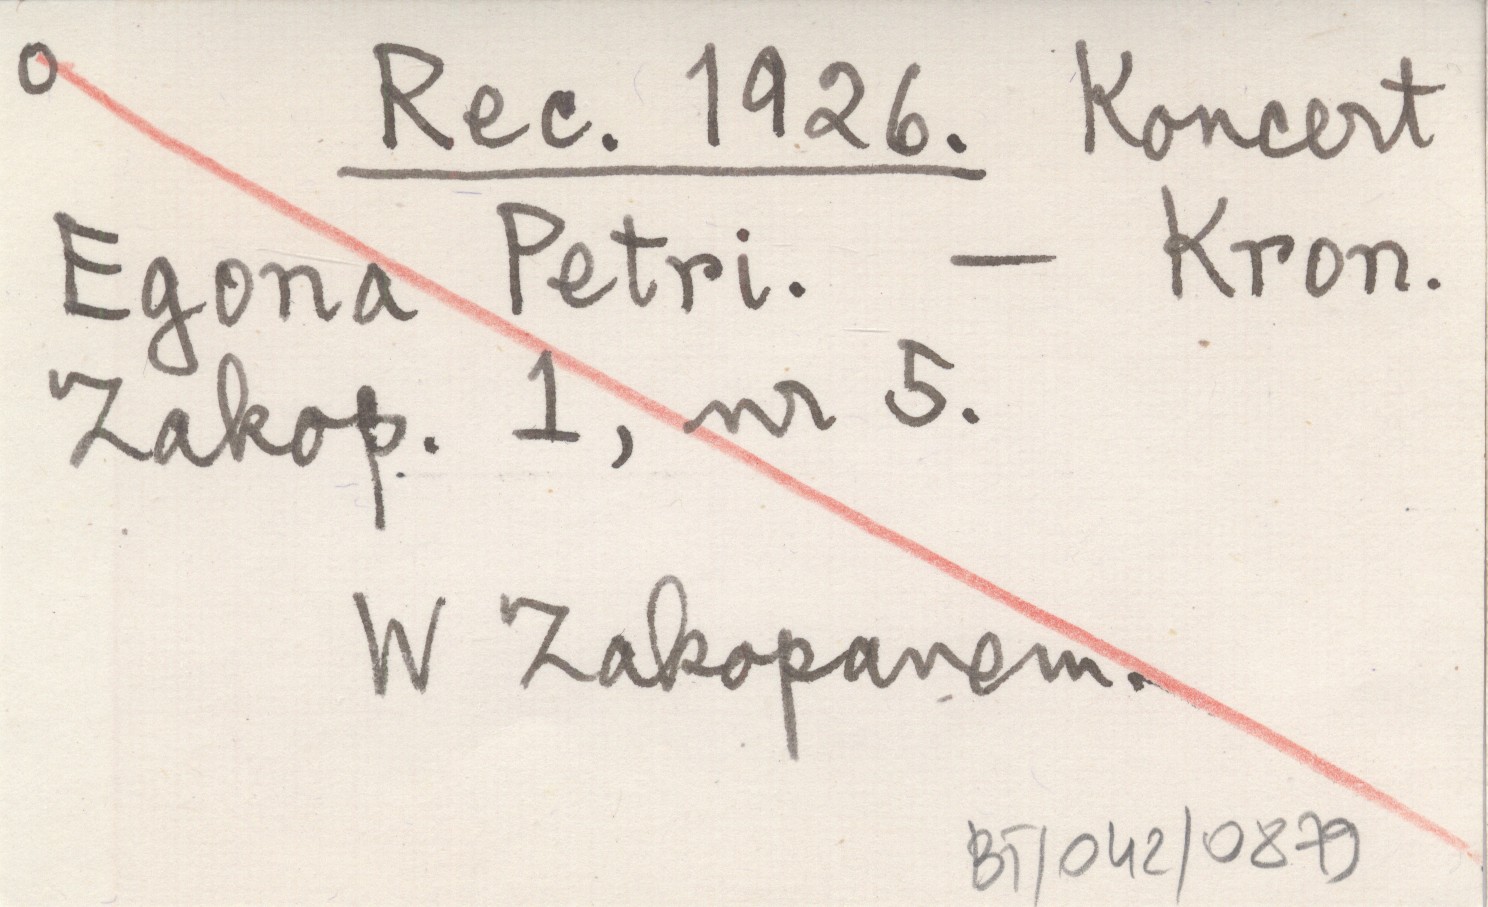 o Rec. 1926. Koncert
Egona Petri. — Kron.
Zakop. 1, nr 5.
W Zakopanem.
BT/042/0879